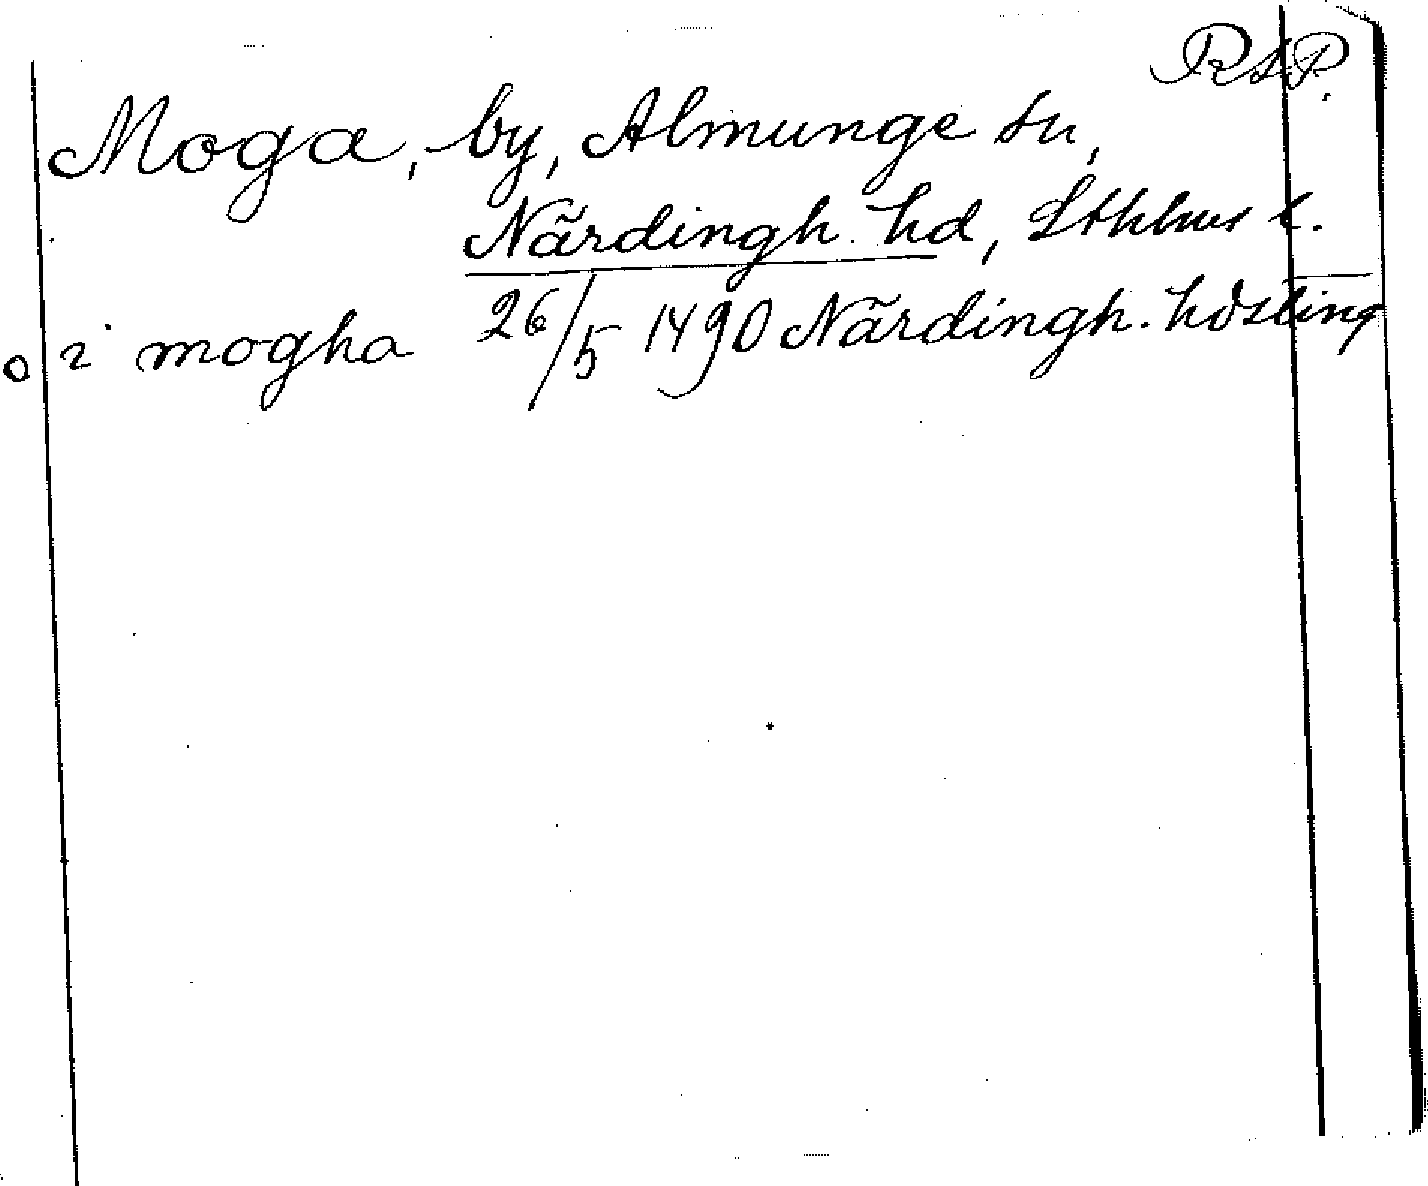 RAP.
Moga, by, Almunge sn,
Närdingh. hd, Sthlms l.
o i mogha 26/5 1490 Närdingh. hdsting